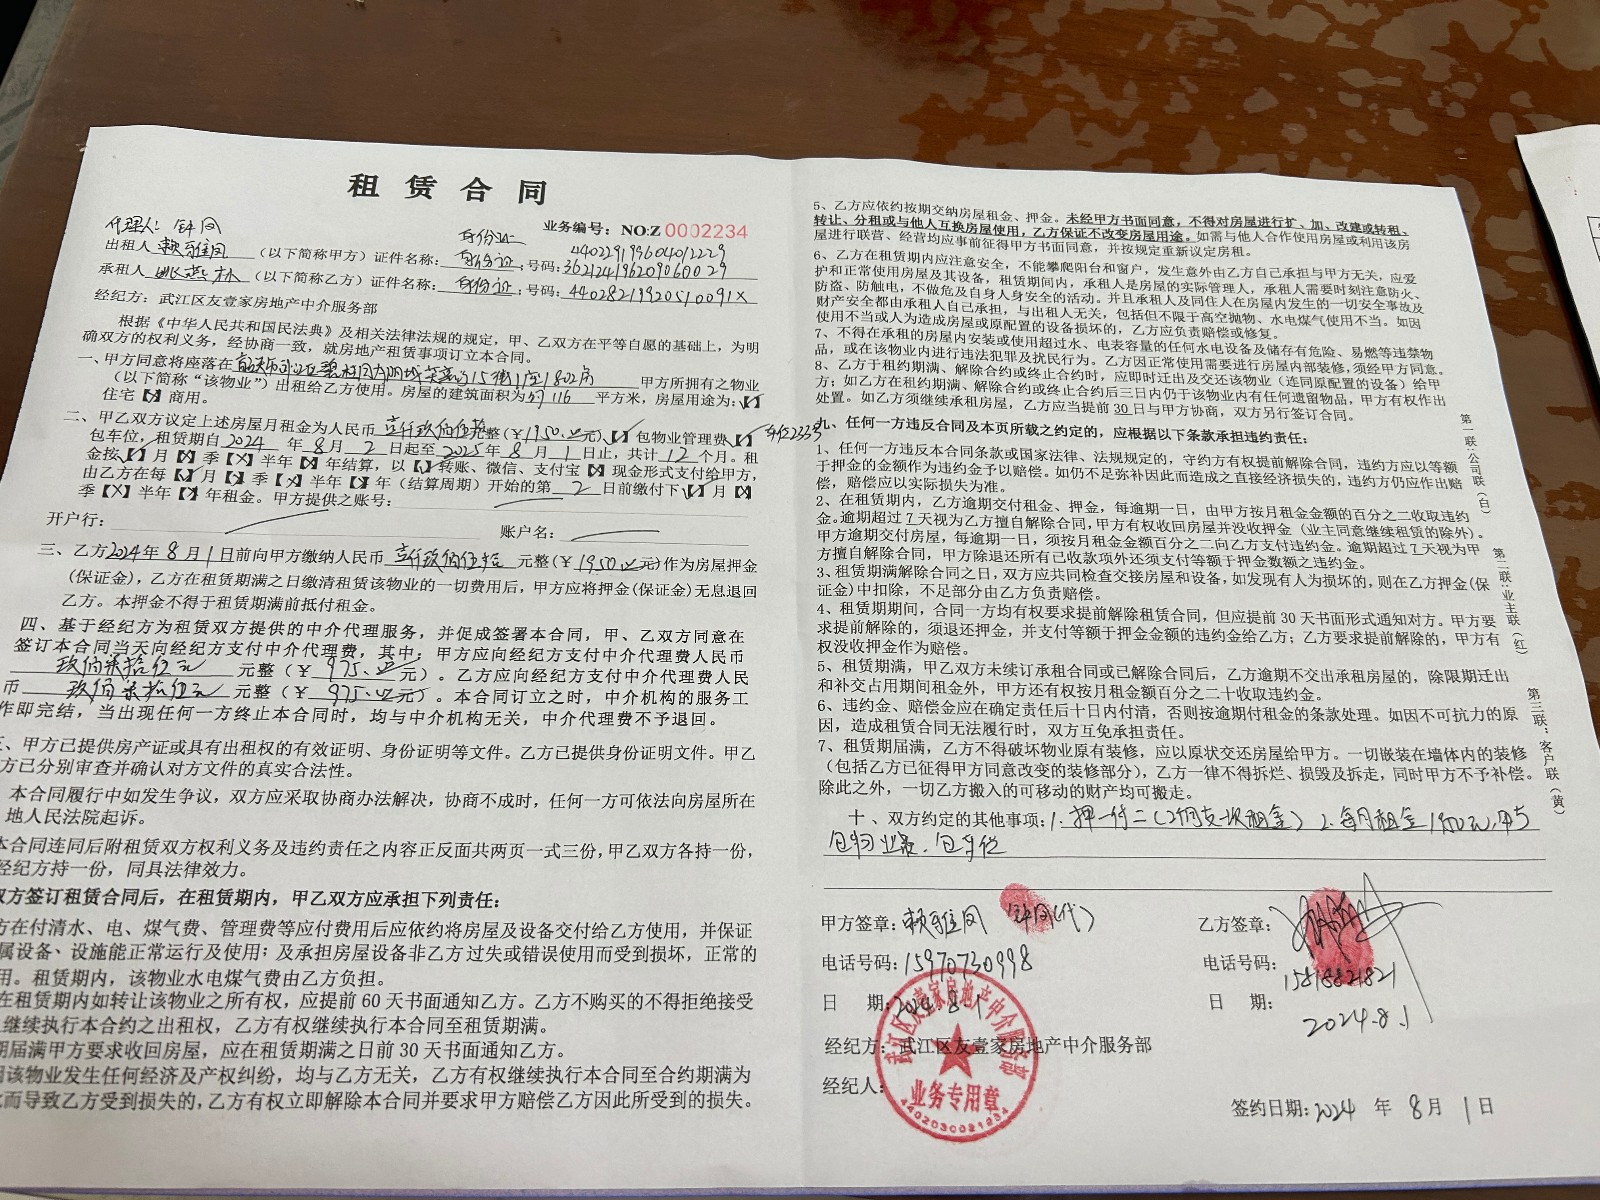 租赁合同
业务编号：NO:Z 0002234
代理人：钟凤
身份证 440229199604012229
出租人 赖雅凤 （以下简称甲方）证件名称：身份证；号码：362124196209060029
承租人 （以下简称乙方）证件名称：身份证；号码：44028219920510091X
经纪方：武江区友壹家房地产中介服务部
根据《中华人民共和国民法典》及相关法律法规的规定，甲、乙双方在平等自愿的基础上，为明
确双方的权利义务，经协商一致，就房地产租赁事项订立本合同。
一、甲方同意将座落在 15街1座1802房 甲方所拥有之物业
（以下简称“该物业”）出租给乙方使用。房屋的建筑面积为 约116 平方米，房屋用途为：【✓】
住宅【X】商用。
二、甲乙双方议定上述房屋月租金为人民币 壹仟玖佰伍拾元整（￥1950.00元）、【✓】包物业管理费【✓】
包车位，租赁期自2024年8月2日起至2025年8月1日止，共计12个月。租
金按【✓】月【X】季【X】半年【X】年结算，以【✓】转账、微信、支付宝【X】现金形式支付给甲方，
由乙方在每【✓】月【X】季【X】半年【X】年（结算周期）开始的第 2 日前缴付下【✓】月【X】
季【X】半年【X】年租金。甲方提供之账号：
开户行： 账户名：
三、乙方2024年8月1日前向甲方缴纳人民币 壹仟玖佰伍拾 元整（￥1950.00元）作为房屋押金
(保证金)，乙方在租赁期满之日缴清租赁该物业的一切费用后，甲方应将押金(保证金)无息退回
乙方。本押金不得于租赁期满前抵付租金。
四、基于经纪方为租赁双方提供的中介代理服务，并促成签署本合同，甲、乙双方同意在
签订本合同当天向经纪方支付中介代理费，其中：甲方应向经纪方支付中介代理费人民币
玖佰柒拾伍元 元整（￥975.00元）。乙方应向经纪方支付中介代理费人民
币 玖佰柒拾伍元 元整（￥975.00元）。本合同订立之时，中介机构的服务工
作即完结，当出现任何一方终止本合同时，均与中介机构无关，中介代理费不予退回。
、甲方已提供房产证或具有出租权的有效证明、身份证明等文件。乙方已提供身份证明文件。甲乙
方已分别审查并确认对方文件的真实合法性。
本合同履行中如发生争议，双方应采取协商办法解决，协商不成时，任何一方可依法向房屋所在
地人民法院起诉。
本合同连同后附租赁双方权利义务及违约责任之内容正反面共两页一式三份，甲乙双方各持一份，
经纪方持一份，同具法律效力。
双方签订租赁合同后，在租赁期内，甲乙双方应承担下列责任：
方在付清水、电、煤气费、管理费等应付费用后应依约将房屋及设备交付给乙方使用，并保证
属设备、设施能正常运行及使用；及承担房屋设备非乙方过失或错误使用而受到损坏，正常的
用。租赁期内，该物业水电煤气费由乙方负担。
在租赁期内如转让该物业之所有权，应提前60天书面通知乙方。乙方不购买的不得拒绝接受
继续执行本合约之出租权，乙方有权继续执行本合同至租赁期满。
期届满甲方要求收回房屋，应在租赁期满之日前30天书面通知乙方。
该物业发生任何经济及产权纠纷，均与乙方无关，乙方有权继续执行本合同至合约期满为
而导致乙方受到损失的，乙方有权立即解除本合同并要求甲方赔偿乙方因此所受到的损失。
5、乙方应依约按期交纳房屋租金、押金。未经甲方书面同意，不得对房屋进行扩、加、改建或转租、
转让、分租或与他人互换房屋使用，乙方保证不改变房屋用途。如需与他人合作使用房屋或利用该房
屋进行联营、经营均应事前征得甲方书面同意，并按规定重新议定房租。
6、乙方在租赁期内应注意安全，不能攀爬阳台和窗户，发生意外由乙方自己承担与甲方无关，应爱
护和正常使用房屋及其设备，租赁期间内，承租人是房屋的实际管理人，承租人需要时刻注意防火、
防盗、防触电，不做危及自身人身安全的活动。并且承租人及同住人在房屋内发生的一切安全事故及
财产安全都由承租人自己承担，与出租人无关，包括但不限于高空抛物、水电煤气使用不当。如因
使用不当或人为造成房屋或原配置的设备损坏的，乙方应负责赔偿或修复。
7、不得在承租的房屋内安装或使用超过水、电表容量的任何水电设备及储存有危险、易燃等违禁物
品，或在该物业内进行违法犯罪及扰民行为。乙方因正常使用需要进行房屋内部装修，须经甲方同意。
8、乙方于租约期满、解除合约或终止合约时，应即时迁出及交还该物业（连同原配置的设备）给甲
方；如乙方在租约期满、解除合约或终止合约后三日内仍于该物业内有任何遗留物品，甲方有权作出
处置。如乙方须继续承租房屋，乙方应当提前30日与甲方协商，双方另行签订合同。
九、任何一方违反合同及本页所载之约定的，应根据以下条款承担违约责任：
1、任何一方违反本合同条款或国家法律、法规规定的，守约方有权提前解除合同，违约方应以等额
于押金的金额作为违约金予以赔偿。如仍不足弥补因此而造成之直接经济损失的，违约方仍应作出赔
偿，赔偿应以实际损失为准。
2、在租赁期内，乙方逾期交付租金、押金，每逾期一日，由甲方按月租金金额的百分之二收取违约
金。逾期超过7天视为乙方擅自解除合同，甲方有权收回房屋并没收押金（业主同意继续租赁的除外）。
甲方逾期交付房屋，每逾期一日，须按月租金金额百分之二向乙方支付违约金。逾期超过7天视为甲
方擅自解除合同，甲方除退还所有已收款项外还须支付等额于押金数额之违约金。
3、租赁期满解除合同之日，双方应共同检查交接房屋和设备，如发现有人为损坏的，则在乙方押金(保
证金)中扣除，不足部分由乙方负责赔偿。
4、租赁期期间，合同一方均有权要求提前解除租赁合同，但应提前30天书面形式通知对方。甲方要
求提前解除的，须退还押金，并支付等额于押金金额的违约金给乙方；乙方要求提前解除的，甲方有
权没收押金作为赔偿。
5、租赁期满，甲乙双方未续订承租合同或已解除合同后，乙方逾期不交出承租房屋的，除限期迁出
和补交占用期间租金外，甲方还有权按月租金额百分之二十收取违约金。
6、违约金、赔偿金应在确定责任后十日内付清，否则按逾期付租金的条款处理。如因不可抗力的原
因，造成租赁合同无法履行时，双方互免承担责任。
7、租赁期届满，乙方不得破坏物业原有装修，应以原状交还房屋给甲方。一切嵌装在墙体内的装修
（包括乙方已征得甲方同意改变的装修部分），乙方一律不得拆烂、损毁及拆走，同时甲方不予补偿。
除此之外，一切乙方搬入的可移动的财产均可搬走。
十、双方约定的其他事项：1. 押一付二（2个月支一次租金）2. 每月租金1950元，
包物业费、包车位
第一联：公司联（白）
第二联：业主联（红）
第三联：客户联（黄）
甲方签章：赖雅凤 钟凤（代）
电话号码：15970730998
日期：2024.8.1
乙方签章：
电话号码：
日期：2024.8.1
经纪方：武江区友壹家房地产中介服务部
经纪人：
武江区友壹家房地产中介服务部
业务专用章
签约日期：2024年8月1日